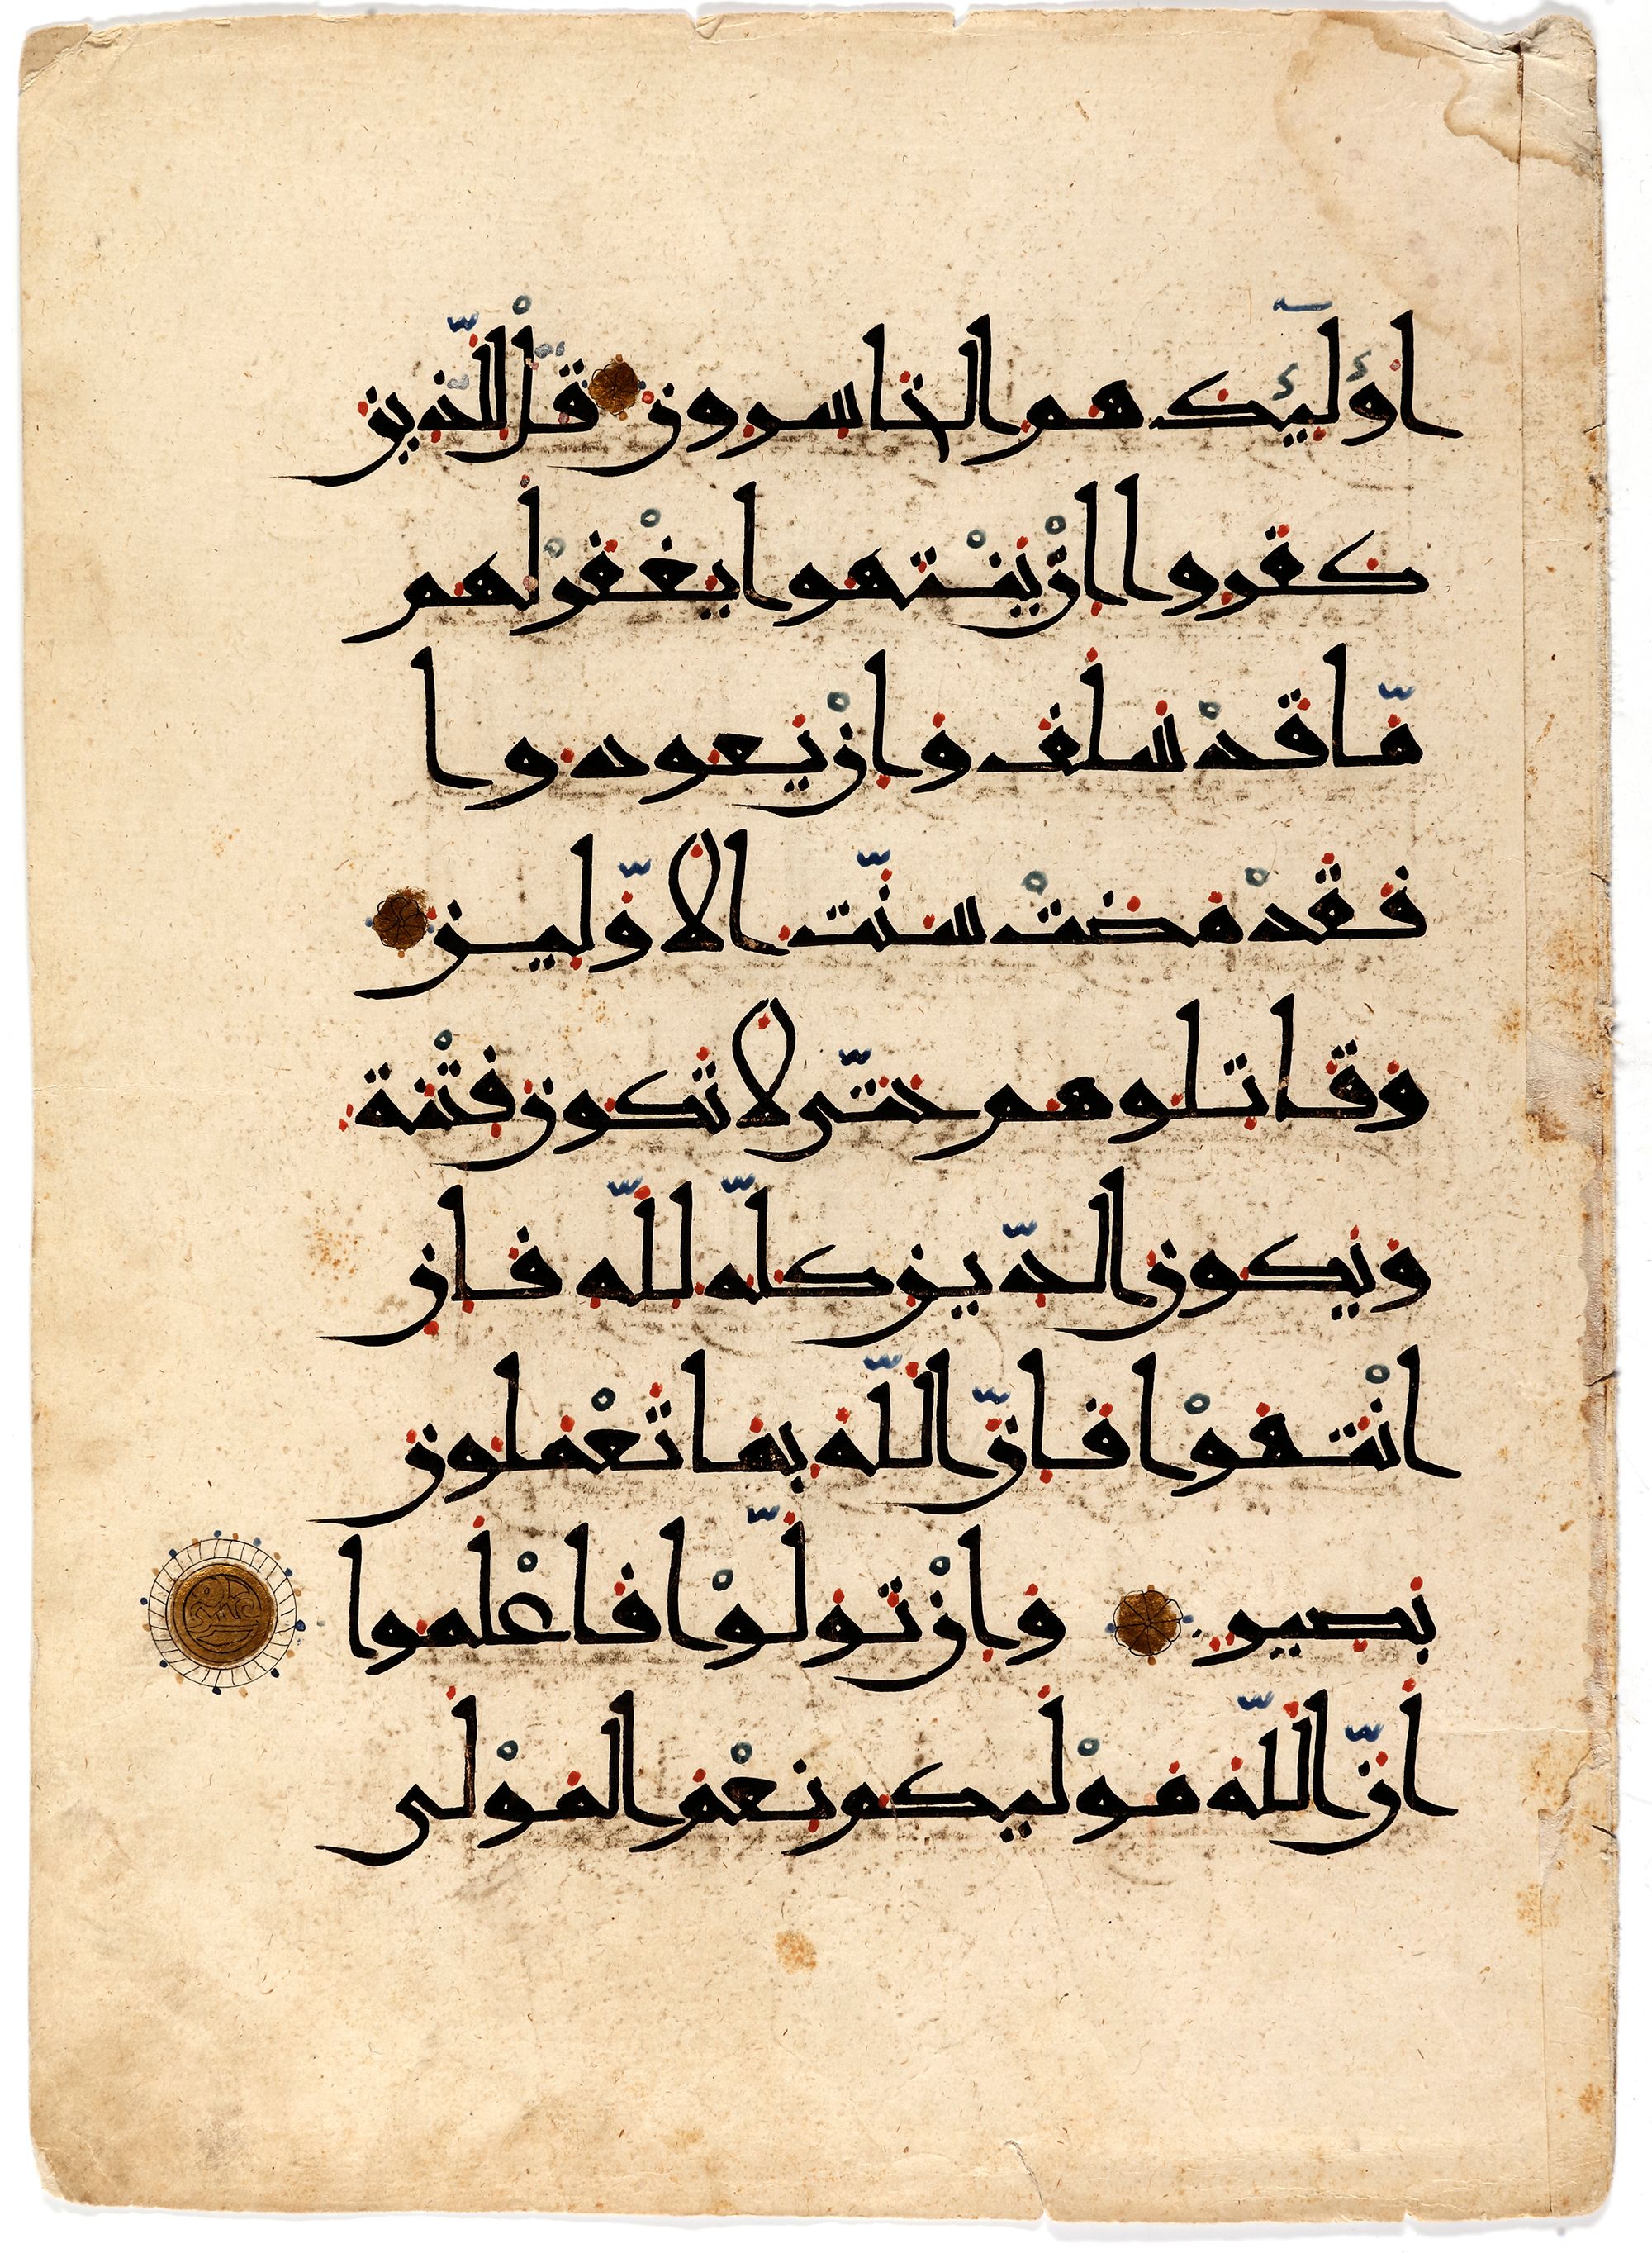 اولئك هم الخاسرون قل للذين
كفروا ان ينتهوا يغفر لهم
ما قد سلف وان يعودوا
فقد مضت سنت الاولين
وقاتلوهم حتى لا تكون فتنة
ويكون الدين كله لله فان
انتهوا فان الله بما تعملون
بصير وان تولوا فاعلموا
ان الله موليكم نعم المولى